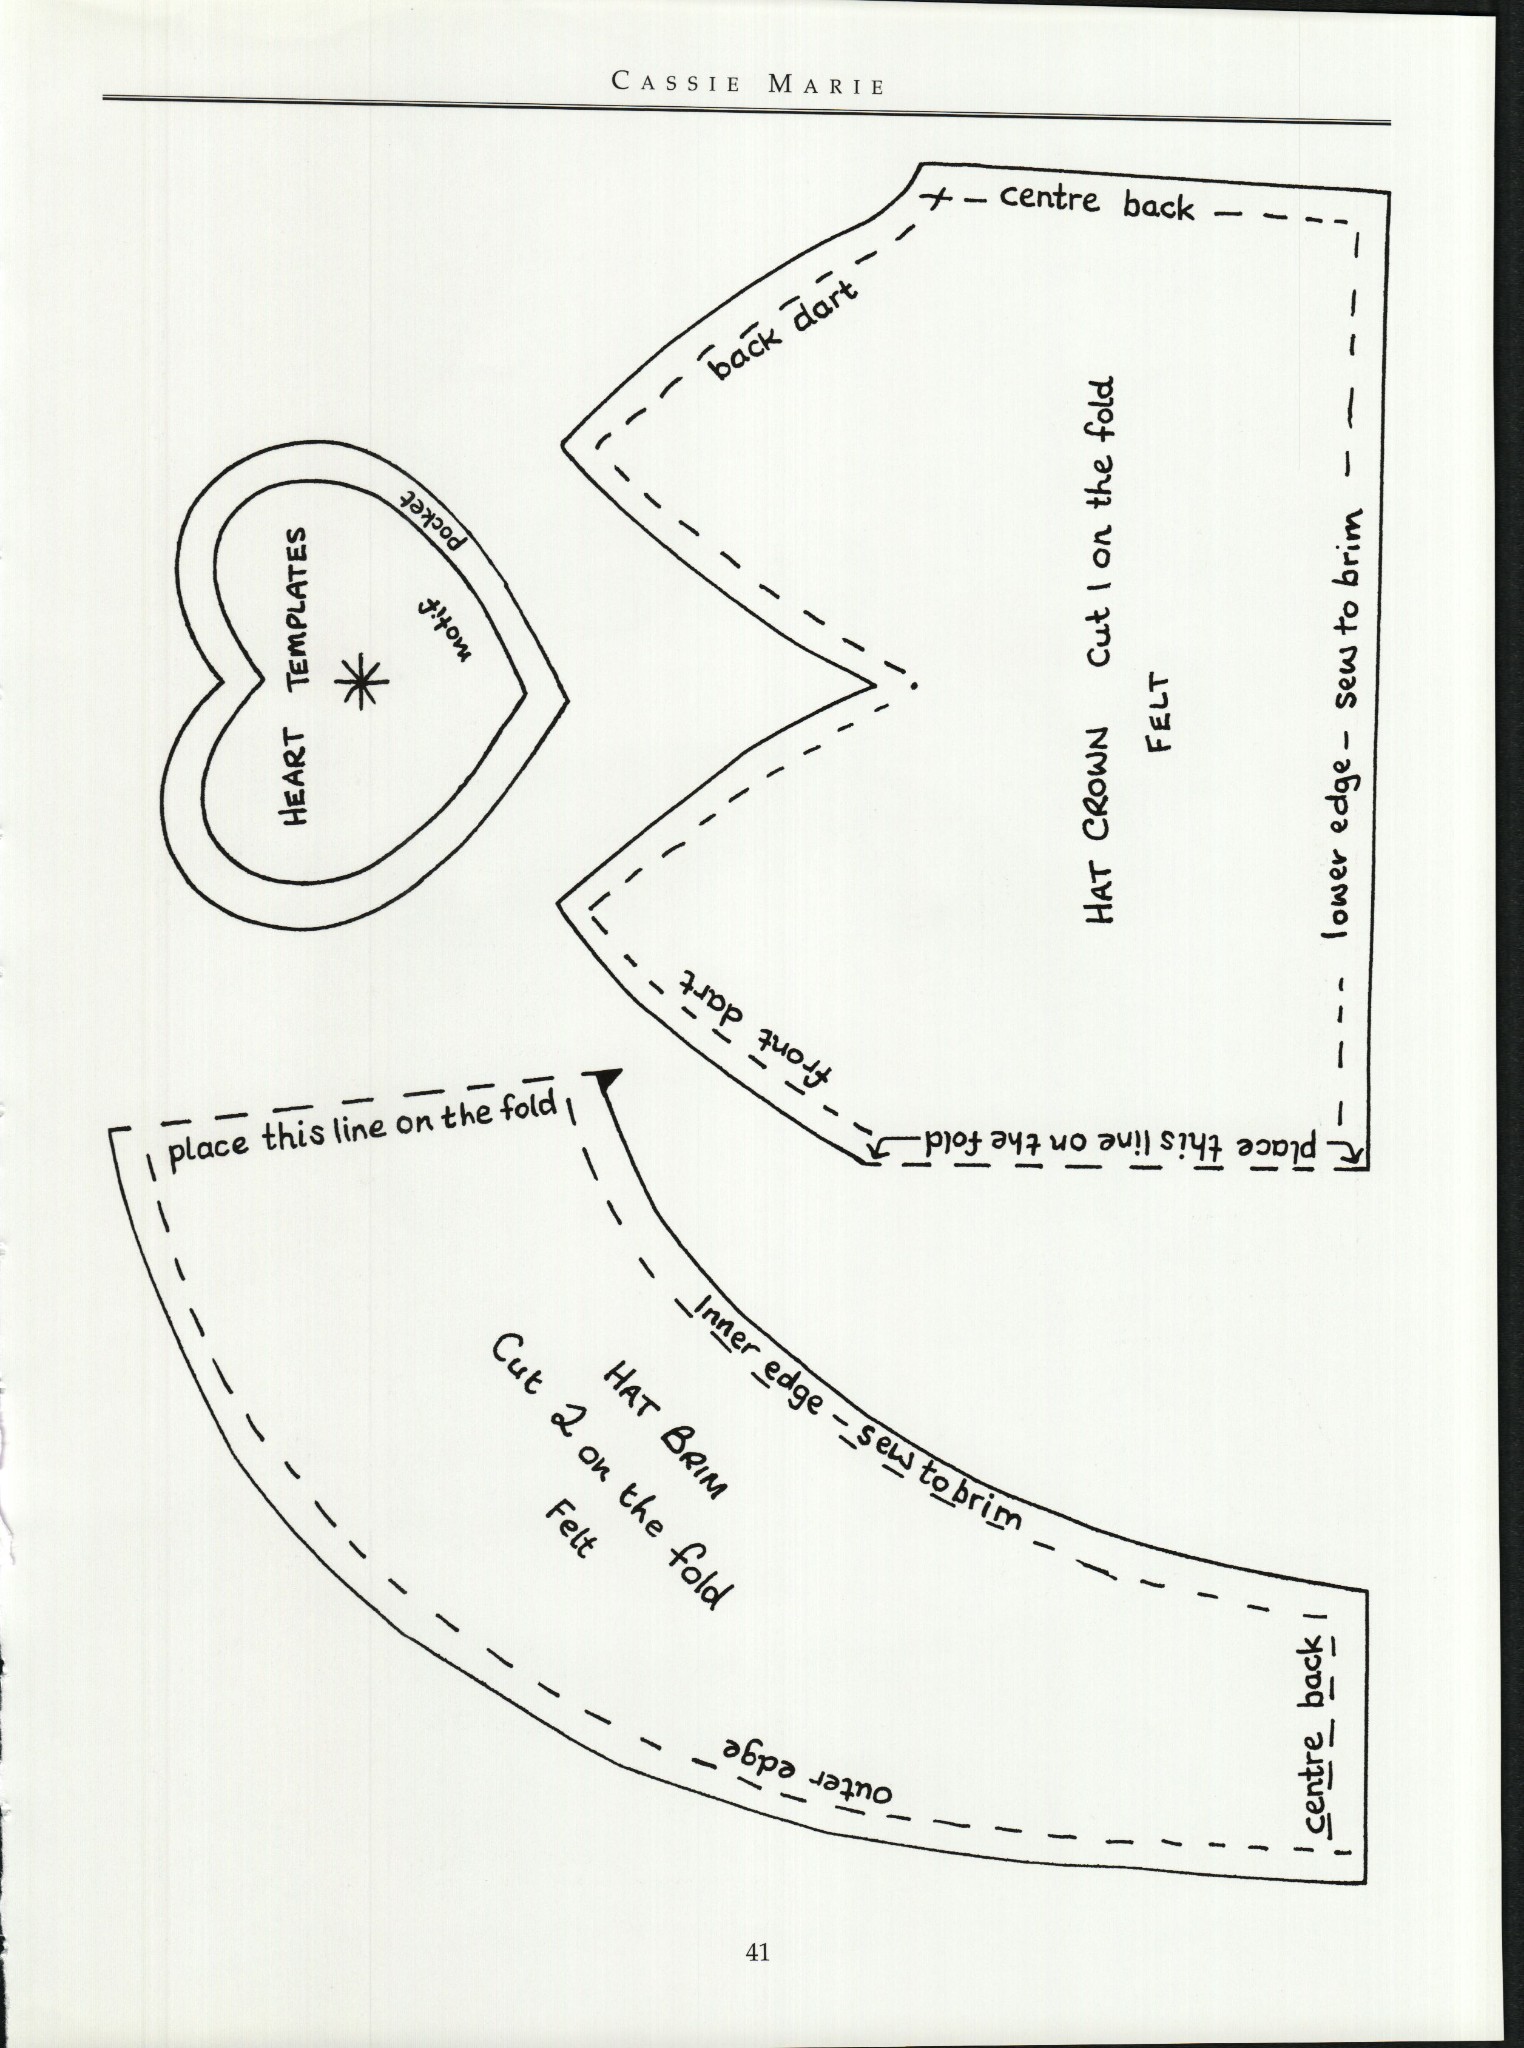 CASSIE MARIE
centre back
back dart
HAT CROWN Cut 1 on the fold
FELT
lower edge - sew to brim
front dart
place this line on the fold
HEART TEMPLATES
pocket
motif
place this line on the fold
Inner edge - sew to brim
HAT BRIM
Cut 2 on the fold
Felt
outer edge
centre back
41